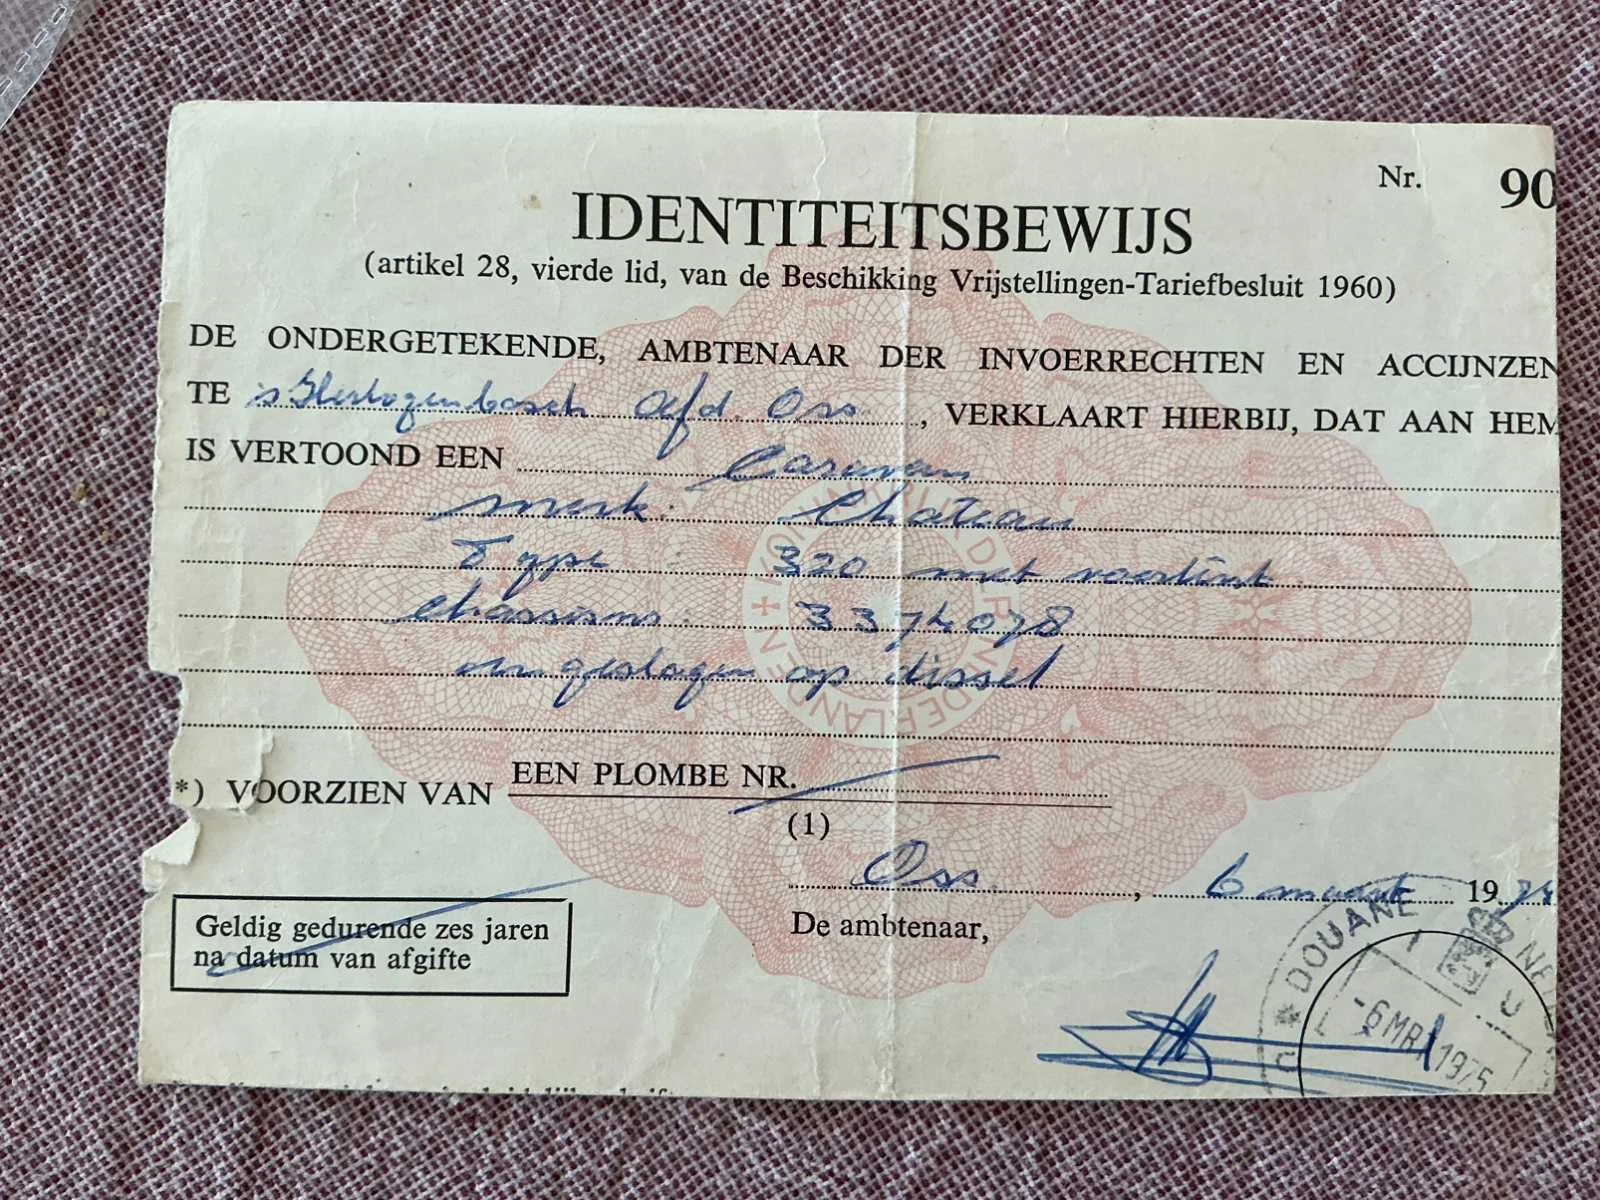 Nr. 90
IDENTITEITSBEWIJS
(artikel 28, vierde lid, van de Beschikking Vrijstellingen-Tariefbesluit 1960)
DE ONDERGETEKENDE, AMBTENAAR DER INVOERRECHTEN EN ACCIJNZEN
TE 's Hertogenbosch afd. Oss, VERKLAART HIERBIJ, DAT AAN HEM
IS VERTOOND EEN Caravan
merk: Chateau
Type : 320 met voortent
chassisnr: 3374078
ingeslagen op dissel
*) VOORZIEN VAN EEN PLOMBE NR.
(1)
Oss, 6 maart 19
De ambtenaar,
Geldig gedurende zes jaren
na datum van afgifte
* DOUANE
-6 MRT 1975
KONINKRIJK DER NEDERLANDEN